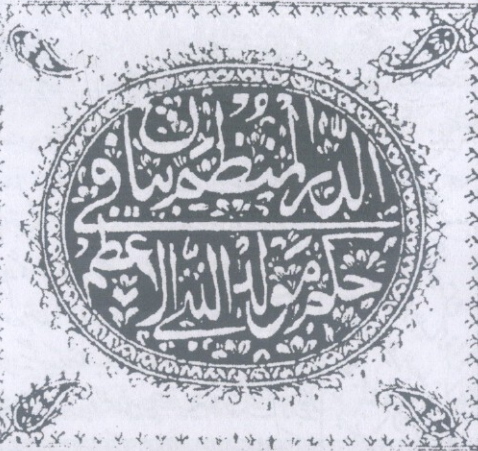 الدر المنظم في بيان
حكم مولد النبي الاعظم